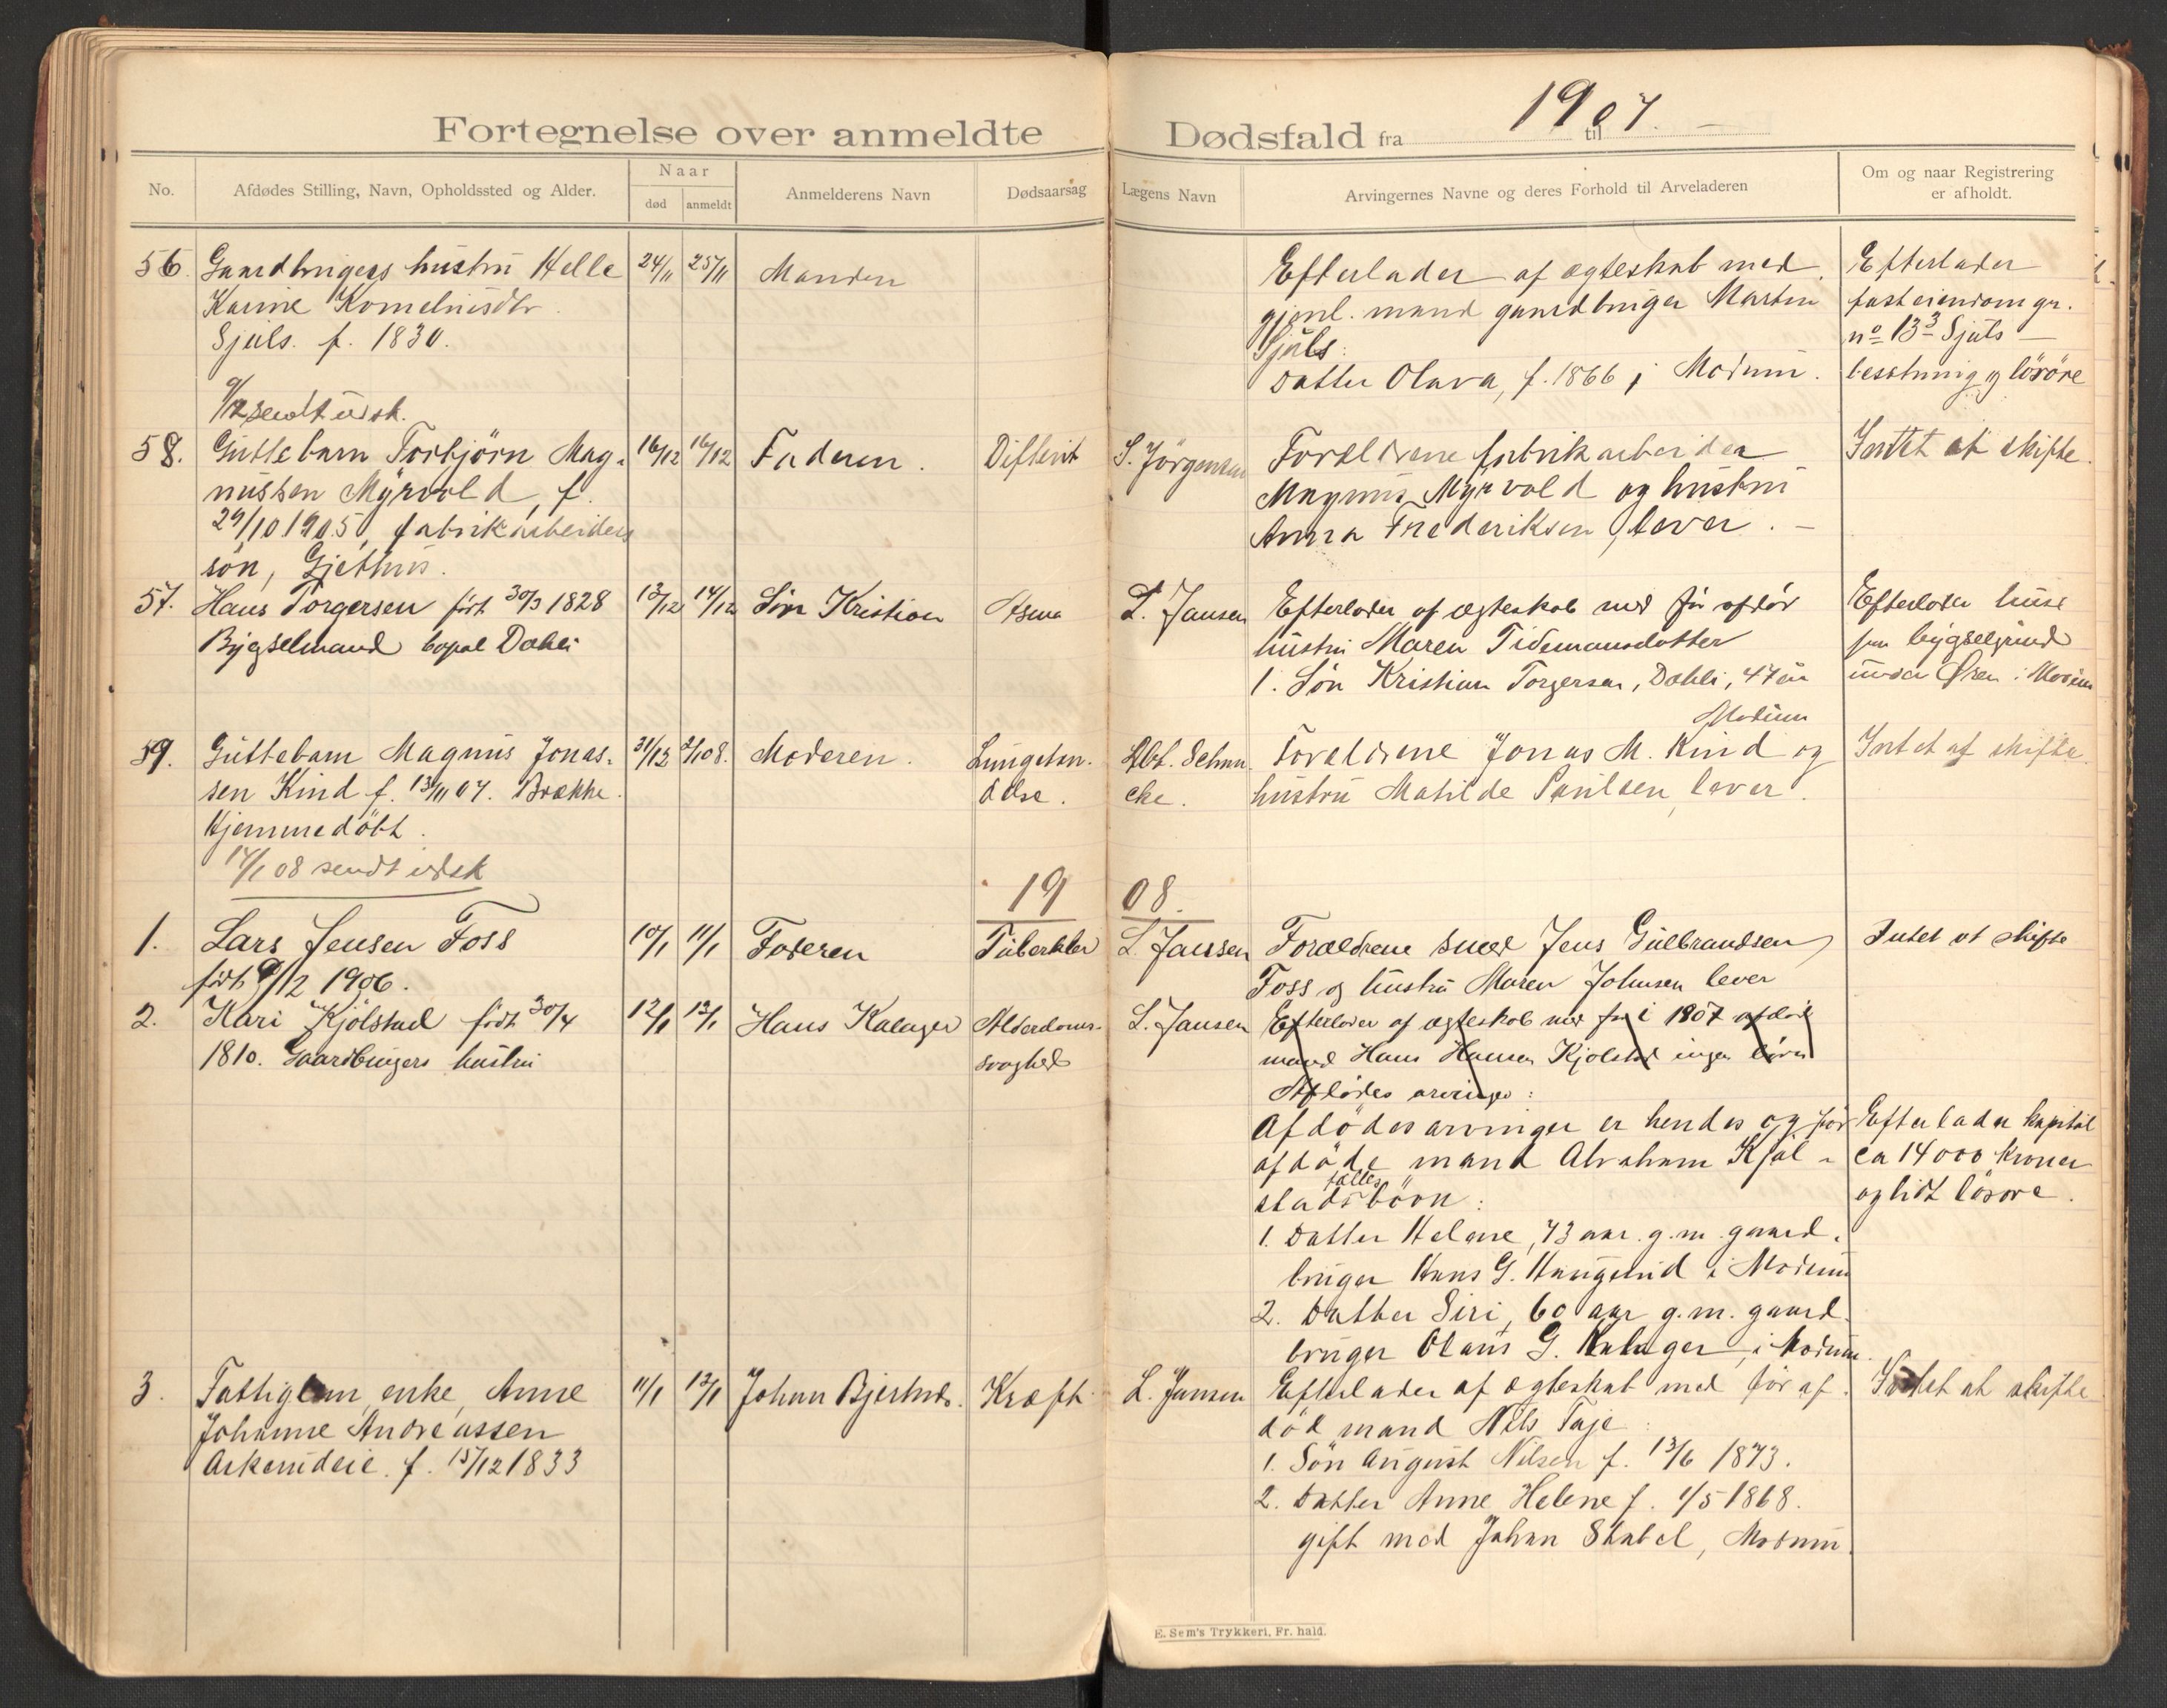 Fortegnelse over anmeldte Dødsfald fra 1907. til
No. Afdødes Stilling, Navn, Opholdssted og Alder. Naar død anmeldt Anmelderens Navn Dødsaarsag Lægens Navn Arvingernes Navne og deres Forhold til Arveladeren Om og naar Registrering er afholdt.
56. Gaardbrugers hustru Helle 24/11 25/11 Manden Efterlader af ægteskab med Efterlader
Karine Kornelnisdtr gjenl. mand gaardbruger Martin fast eiendom gr.
Sjuls. f. 1830. Sjuls: no 13 3 Sjuls
Datter Olava, f. 1866, Modum. besetning og løsøre
9/12 sendt udsk.
58. Guttebarn Torbjörn Mag- 16/12 16/12 Faderen. Difterit S. Jörgensen Forældrene fabrikarbeider Intet at skifte
nussen Myrvold, f. Magnus Myrvold og hustru
29/10 1905, fabrikarbeiders Anna Frederiksen lever.
søn, Gjethus.
57. Hans Torgersen født 30/3 1828 13/12 14/12 Søn Kristian Asma L. Jansen Efterlader af ægteskab med før afdød Efterlader huse
Bygselmand bopæl Dahli hustru Maren Tidemansdatter paa bygselgrund
1. Søn Kristian Torgersen, Dahli, 47 år under Øren i Modum
Modum
59. Guttebarn Magnus Jonas- 31/12 2/1 08. Moderen. Lungebæn- Abt. Schan Forældrene Jonas M. Kind og Intet at skifte.
sen Kind f. 13/11 07. Brække. delse. cke. hustru Matilde Paulsen lever.
Hjemmedöbt.
14/1 08 sendt udsk
1908.
1. Lars Jensen Foss 10/1 11/1 Faderen Tuberkler L. Jansen Forældrene smed Jens Gulbrandsen Intet at skifte
født 9/12 1906. Foss og hustru Maren Johnsen lever
2. Kari Kjølstad født 30/4 12/1 12/1 Hans Kalager Alderdoms- L. Jansen Efterlader af ægteskab med før i 1907 afdød
1810. Gaardbrugers hustru svaghed mand Hans Hansen Kjølstad ingen børn
Afdødes arvinger:
Afdödes arvinger er hendes og för Efterlader kapital
afdøde mand Abraham Kjöl- ca 14000 kroner
stads fælles börn: og lidt løsøre.
1. Datter Helene, 73 aar. g.m. gaard-
bruger Hans G. Haugerud i Modum
2. Datter Siri, 60 aar g.m. gaard-
bruger Olaus G. Kalager, i Modum.
3. Fattiglem, enke, Anne 11/1 12/1 Johan Bjertnæs. Kræft. L. Jansen Efterlader af ægteskab med før af- Intet at skifte
Johanne Andreassen död mand Nils Taje:
Askerudeie. f. 15/12 1833 1. Sön August Nilsen f. 13/6 1873.
2. Datter Anne Helene f. 1/5 1868.
gift med Johan Stabel, Modum.
E. Sem's Trykkeri, Fr. hald.